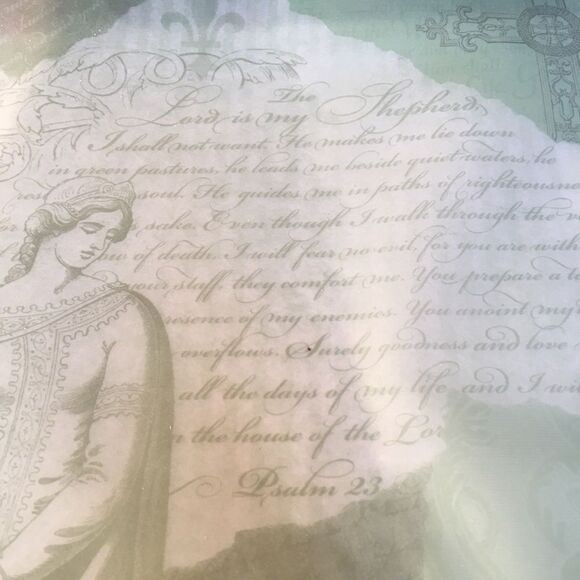 The
Lord is my Shepherd,
I shall not want. He makes me lie down
in green pastures, he leads me beside quiet waters, he
soul. He guides me in paths of righteousne
sake. Even though I walk through the v
ow of death, I will fear no evil, for you are with
your staff, they comfort me. You prepare a ta
resence of my enemies. You anoint my
overflows. Surely goodness and love
all the days of my life and I wi
n the house of the Lor
Psalm 23